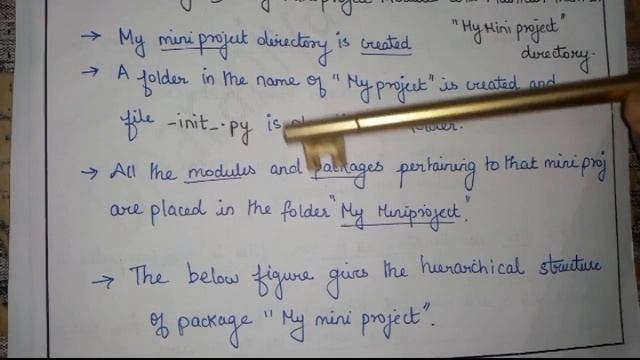 → My mini project directory is created "My Mini project"
directory.
→ A folder in the name of "My project" is created and
file -init_.py is folder.
→ All the modules and packages pertaining to that mini proj
are placed in the folder "My Miniproject".
→ The below figure gives the hierarchical structure
of package "My mini project".